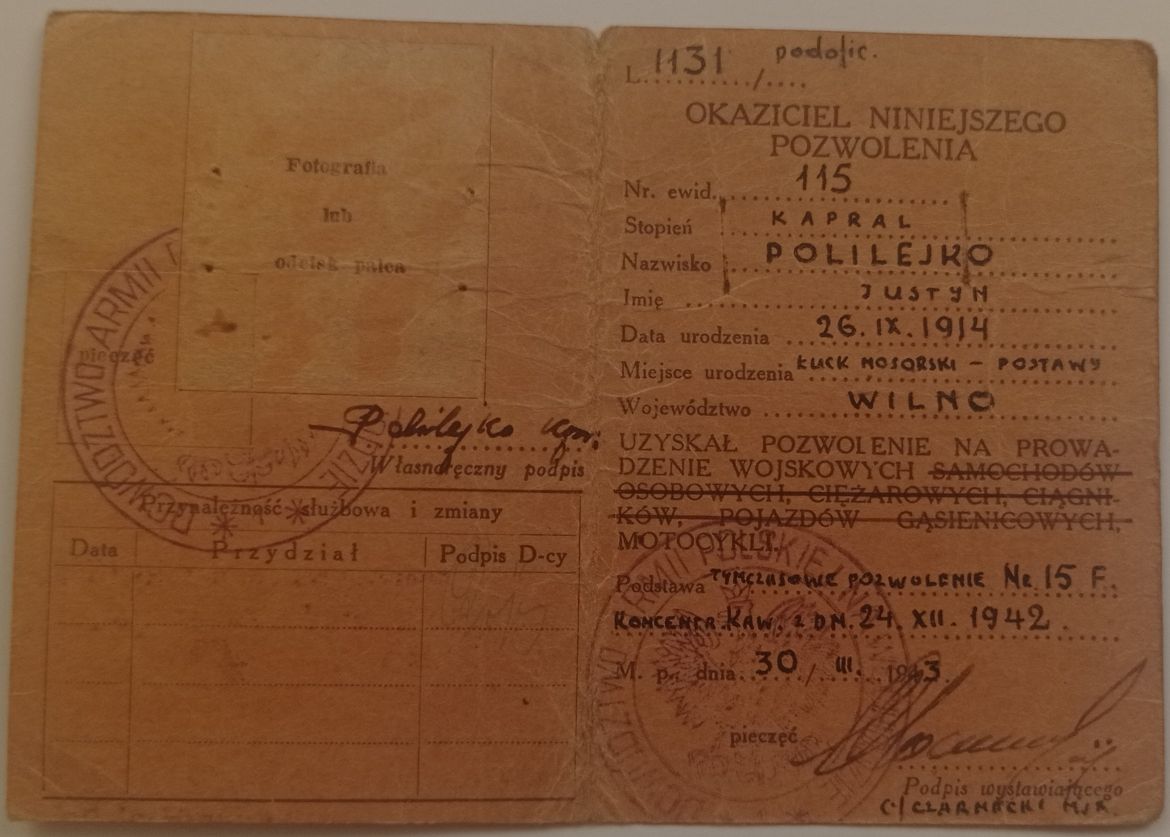 Fotografia
lub
odcisk palca
pieczęć
DOWÓDZTWO ARMII
Polilejko kpr.
Własnoręczny podpis
Przynależność służbowa i zmiany
Data Przydział Podpis D-cy
L. 1131 / podofic.
OKAZICIEL NINIEJSZEGO
POZWOLENIA
Nr. ewid. 115
Stopień KAPRAL
Nazwisko POLILEJKO
Imię JUSTYN
Data urodzenia 26.IX.1914
Miejsce urodzenia ŁUCK MOSARSKI - POSTAWY
Województwo WILNO
UZYSKAŁ POZWOLENIE NA PROWA-
DZENIE WOJSKOWYCH SAMOCHODÓW
OSOBOWYCH, CIĘŻAROWYCH, CIĄGNI-
KÓW, POJAZDÓW GĄSIENICOWYCH,
MOTOCYKLI.
Podstawa TYMCZASOWE POZWOLENIE Nr 15 F.
KONCENTR. KAW. z DN. 24. XII. 1942.
M. p. dnia 30 / III. 1943.
DOWÓDZTWO ARMII POLSKIEJ NA
pieczęć
Podpis wystawiającego
(-) CZARNECKI MJR.